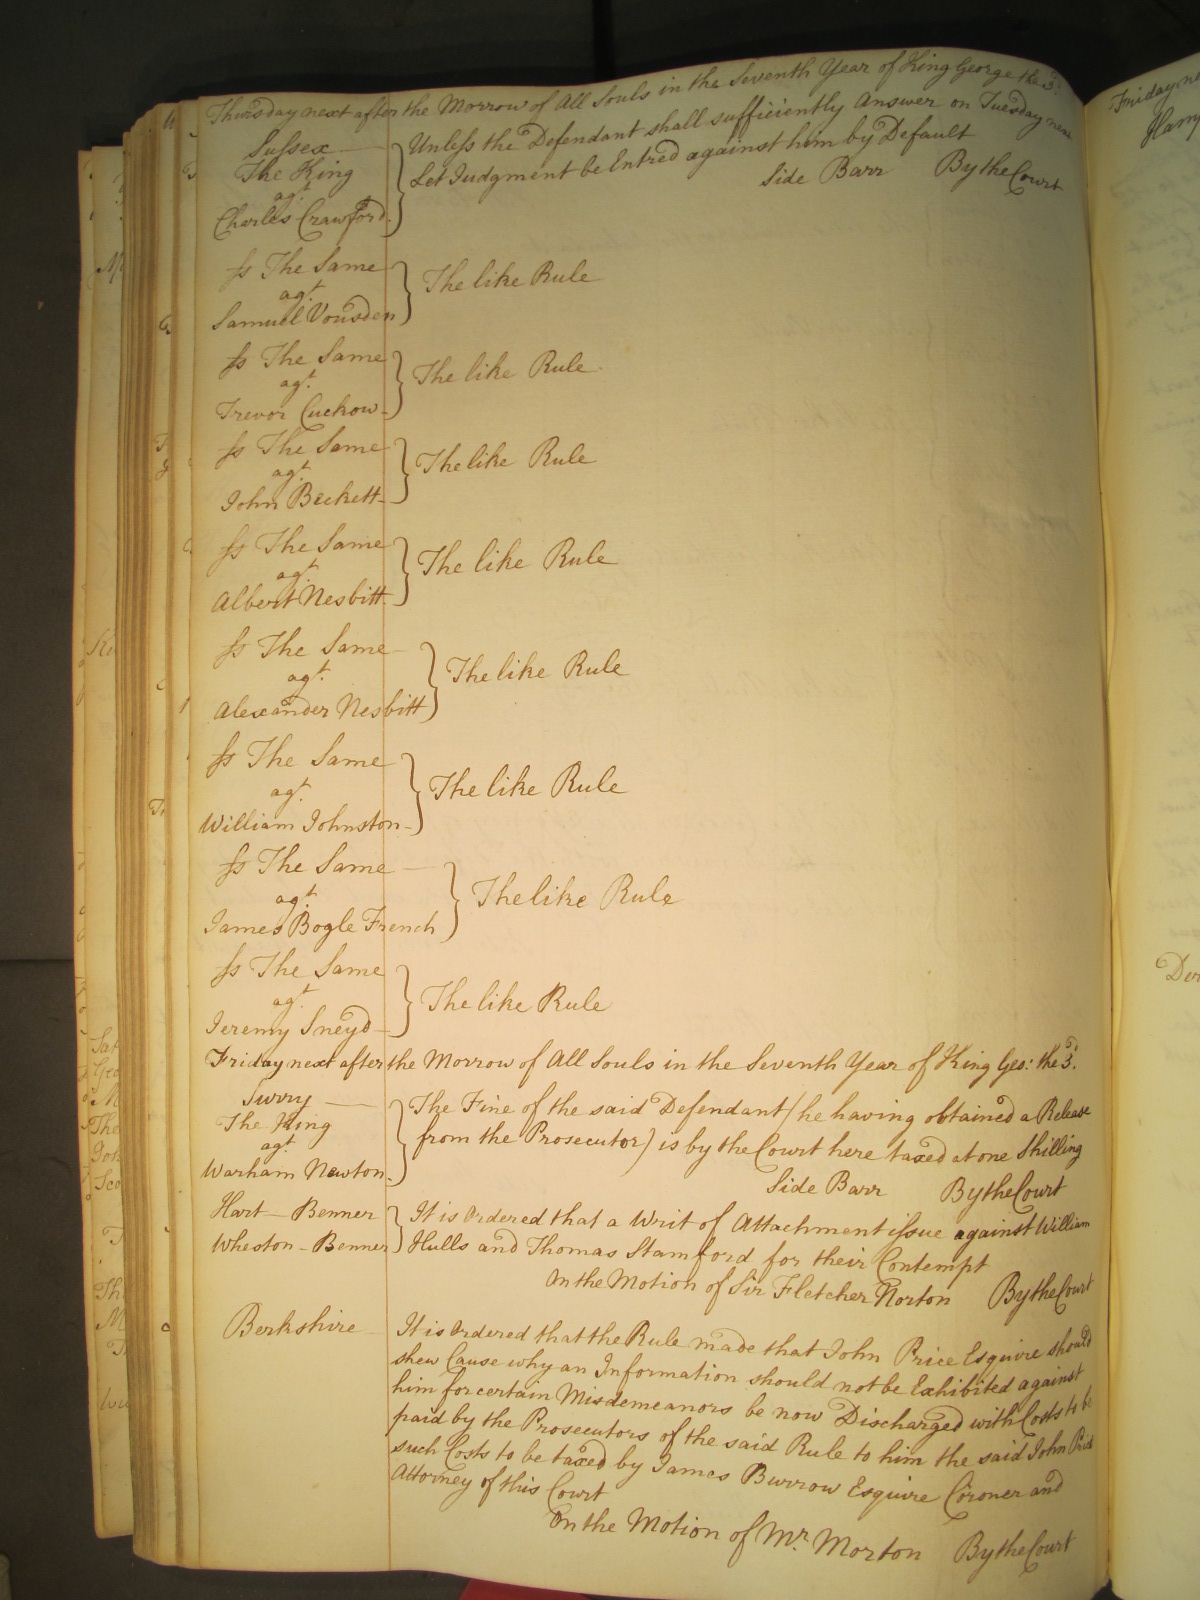 Thursday next after the Morrow of All Souls in the Seventh Year of King George the 3d.
Sussex
The King
agt.
Charles Crawford
Unless the Defendant shall sufficiently Answer on Tuesday next
Let Judgment be Entred against him by Default
Side Barr By the Court
Ss The Same
agt.
Samuel Vousden
The like Rule
Ss The Same
agt.
Trevor Cuckow
The like Rule
Ss The Same
agt.
John Beckett
The like Rule
Ss The Same
agt.
Albert Nesbitt
The like Rule
Ss The Same
agt.
Alexander Nesbitt
The like Rule
Ss The Same
agt.
William Johnston
The like Rule
Ss The Same
agt.
James Bogle French
The like Rule
Ss The Same
agt.
Jeremy Sneyd
The like Rule
Friday next after the Morrow of All Souls in the Seventh Year of King Geo: the 3d.
Surry
The King
agt.
Warham Newton
The Fine of the said Defendant (he having obtained a Release
from the Prosecutor) is by the Court here taxed at one Shilling
Side Barr By the Court
Hart - Benner
Wheston - Benner
It is Ordered that a Writ of Attachment issue against William
Hulls and Thomas Stamford for their Contempt
On the Motion of Sir Fletcher Norton By the Court
Berkshire
It is Ordered that the Rule made that John Price Esquire should
shew Cause why an Information should not be Exhibited against
him for certain Misdemeanors be now Discharged with Costs to be
paid by the Prosecutors of the said Rule to him the said John Price
such Costs to be taxed by James Burrow Esquire Coroner and
Attorney of this Court
On the Motion of Mr. Morton By the Court